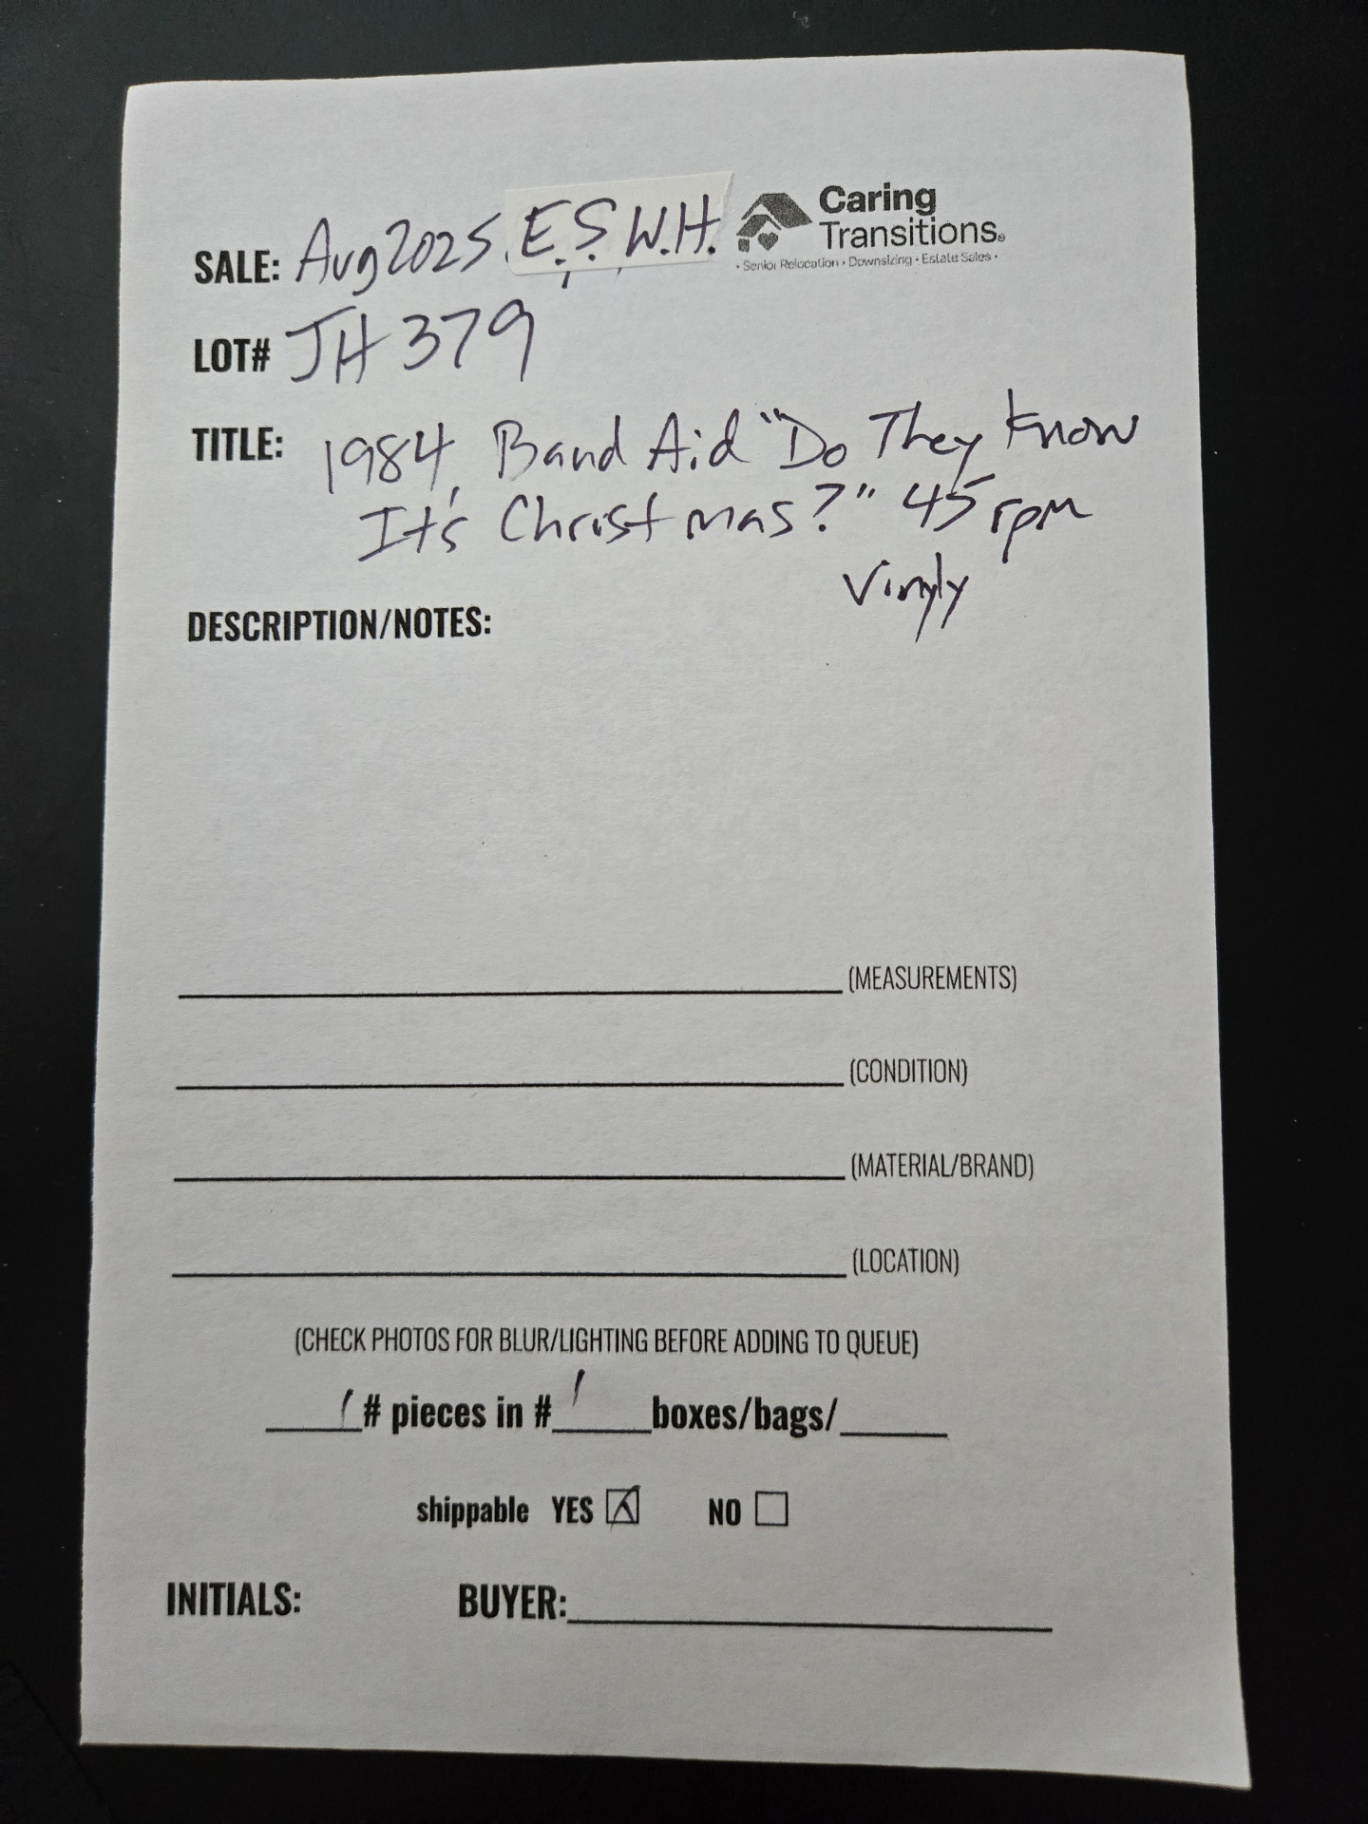 SALE: Aug 2025 E.S.W.H.
Caring
Transitions®
• Senior Relocation • Downsizing • Estate Sales •
LOT# JH 379
TITLE: 1984, Band Aid "Do They Know
It's Christmas?" 45 rpm
Vinyly
DESCRIPTION/NOTES:
(MEASUREMENTS)
(CONDITION)
(MATERIAL/BRAND)
(LOCATION)
(CHECK PHOTOS FOR BLUR/LIGHTING BEFORE ADDING TO QUEUE)
1 # pieces in # 1 boxes/bags/
shippable YES ☒ NO ☐
INITIALS: BUYER: